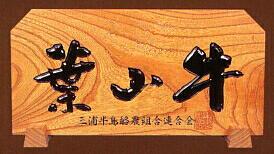 葉山牛
三浦半島酪農組合連合会